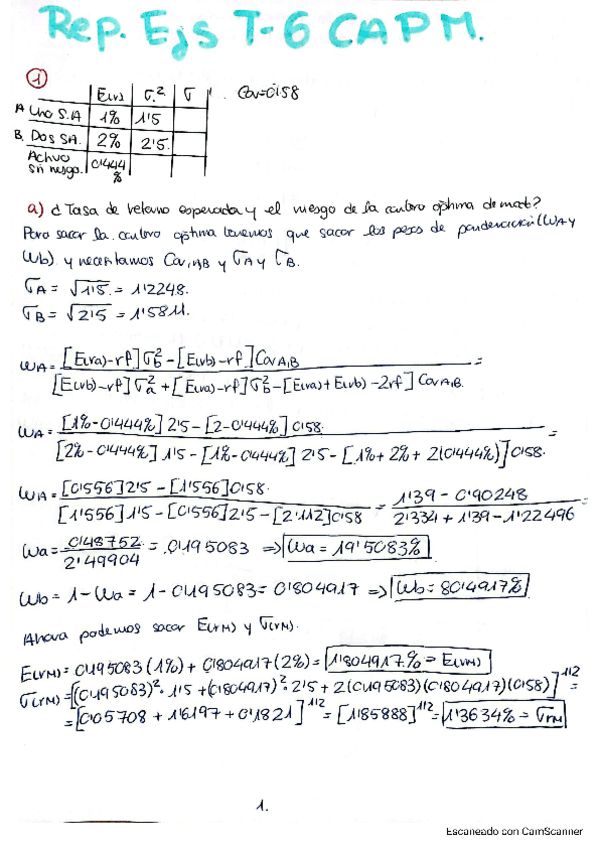 Rep. Ejs T-6 CAPM.
① E(r) σ² σ . Cov=0'58
A Uno S.A 1% 1'5
B. Dos SA. 2% 2'5.
Activo sin riesgo. 0'444 %
a) ¿Tasa de retorno esperada y el riesgo de la cartera óptima de mdo?
Para sacar la cartera óptima tenemos que sacar los pesos de ponderación (WA y
Wb) y necesitamos Cov,AB y σA y σB.
σA = √1'5 = 1'2248.
σB = √2'5 = 1'5811.
WA = [E(ra)-rf] σb² - [E(rb)-rf] Cov A,B =
[E(rb)-rf] σa² + [E(ra)-rf] σb² - [E(ra) + E(rb) - 2rf] Cov A,B.
WA = [1% - 0'444%] 2'5 - [2 - 0'444%] 0'58. =
[2% - 0'444%] 1'5 - [1% - 0'444%] 2'5 - [1% + 2% + 2(0'444%)] 0'58.
WA = [0'556] 2'5 - [1'556] 0'58. = 1'39 - 0'90248 =
[1'556] 1'5 - [0'556] 2'5 - [2'112] 0'58 2'334 + 1'39 - 1'22496
Wa = 0'48752 = 0'195083 ⇒ Wa = 19'5083%
2'49904
Wb = 1 - Wa = 1 - 0'195083 = 0'804917 ⇒ Wb = 80'4917%
Ahora podemos sacar E(rM) y σ(rM).
E(rM) = 0'195083 (1%) + 0'804917 (2%) = 1'804917% = E(rM)
σ(rM) = [(0'195083)² · 1'5 + (0'804917)² · 2'5 + 2(0'195083)(0'804917)(0'58)]^1/2 =
= [0'05708 + 1'6197 + 0'1821]^1/2 = [1'85888]^1/2 = 1'3634% = σrM
1.
Escaneado con CamScanner